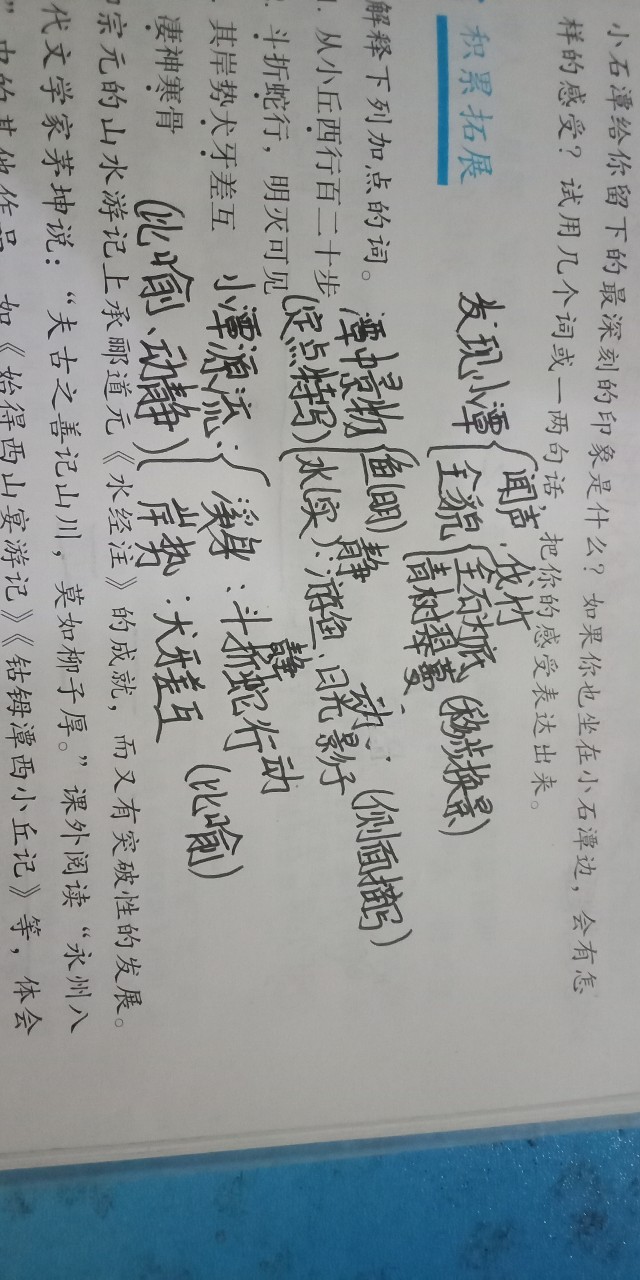 小石潭给你留下的最深刻的印象是什么？如果你也坐在小石潭边，会有怎
样的感受？试用几个词或一两句话 把你的感受表达出来。
积累拓展
解释下列加点的词。
1. 从小丘西行百二十步
斗折蛇行，明灭可见
其岸势犬牙差互
凄神寒骨
宗元的山水游记上承郦道元《水经注》的成就，而又有突破性的发展。
代文学家茅坤说：“夫古之善记山川，莫如柳子厚。”课外阅读“永州八
”中的其他作品，如《始得西山宴游记》《钴鉧潭西小丘记》等，体会
发现小潭
闻声：伐竹
全貌
全石为底
青树翠蔓
(移步换景)
潭中景物
(定点特写)
鱼(明)
水(实)
静
动：
游鱼、日光、影子
(侧面描写)
小潭源流：
(比喻、动静)
溪身：斗折蛇行
静
动
岸势：犬牙差互
(比喻)